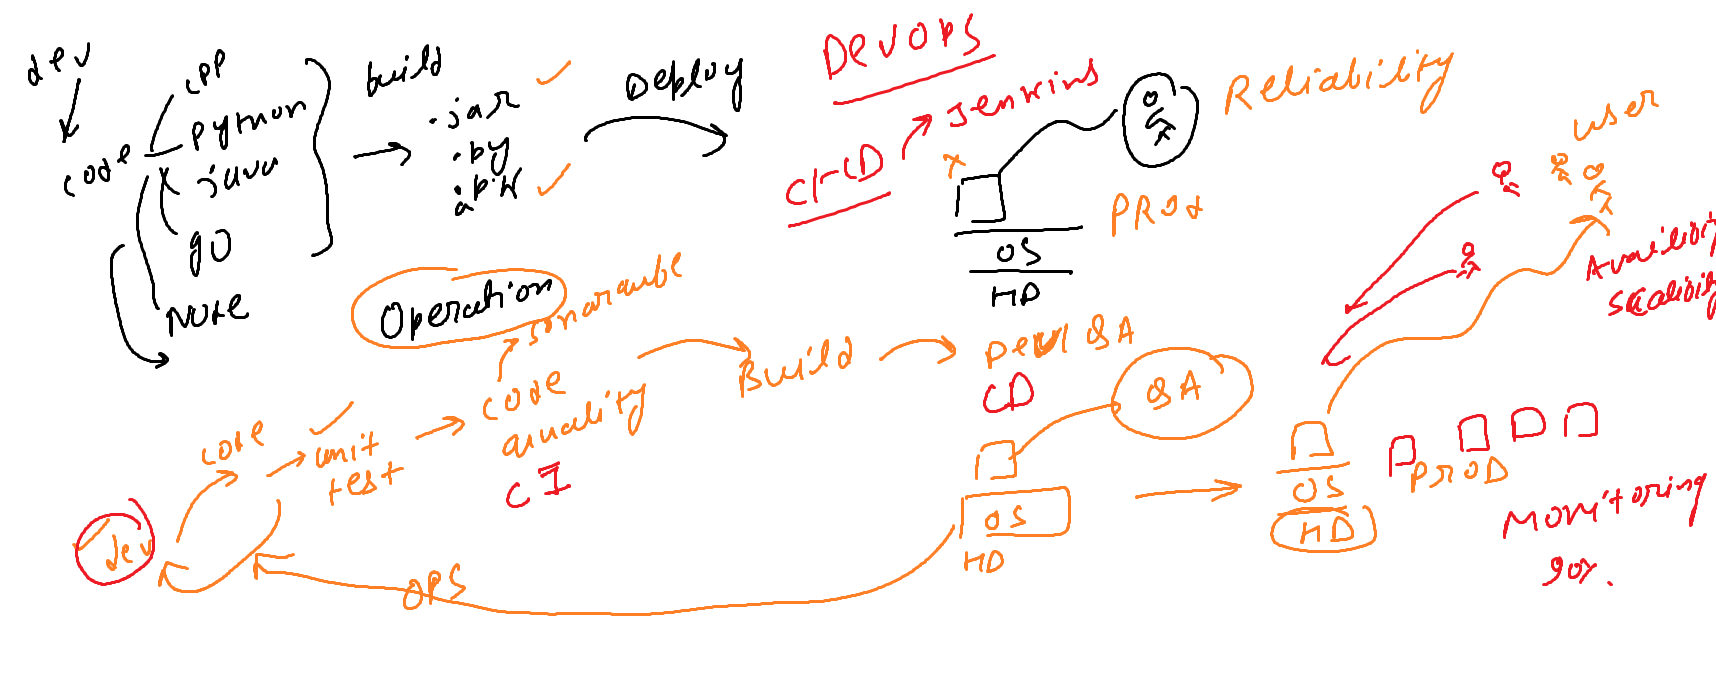 dev
code
cpp
python
java
go
Node
build
.jar
.py
Deploy
DevOPS
CI-CD
Jenkins
Reliability
PROd
OS
HD
user
Availibility
Scalibility
Operation
sonarcube
dev
code
unit
test
code
quality
CI
Build
Dev/ Q&A
CD
Q&A
OS
HD
OPS
OS
HD
PROD
Monitoring
90%.